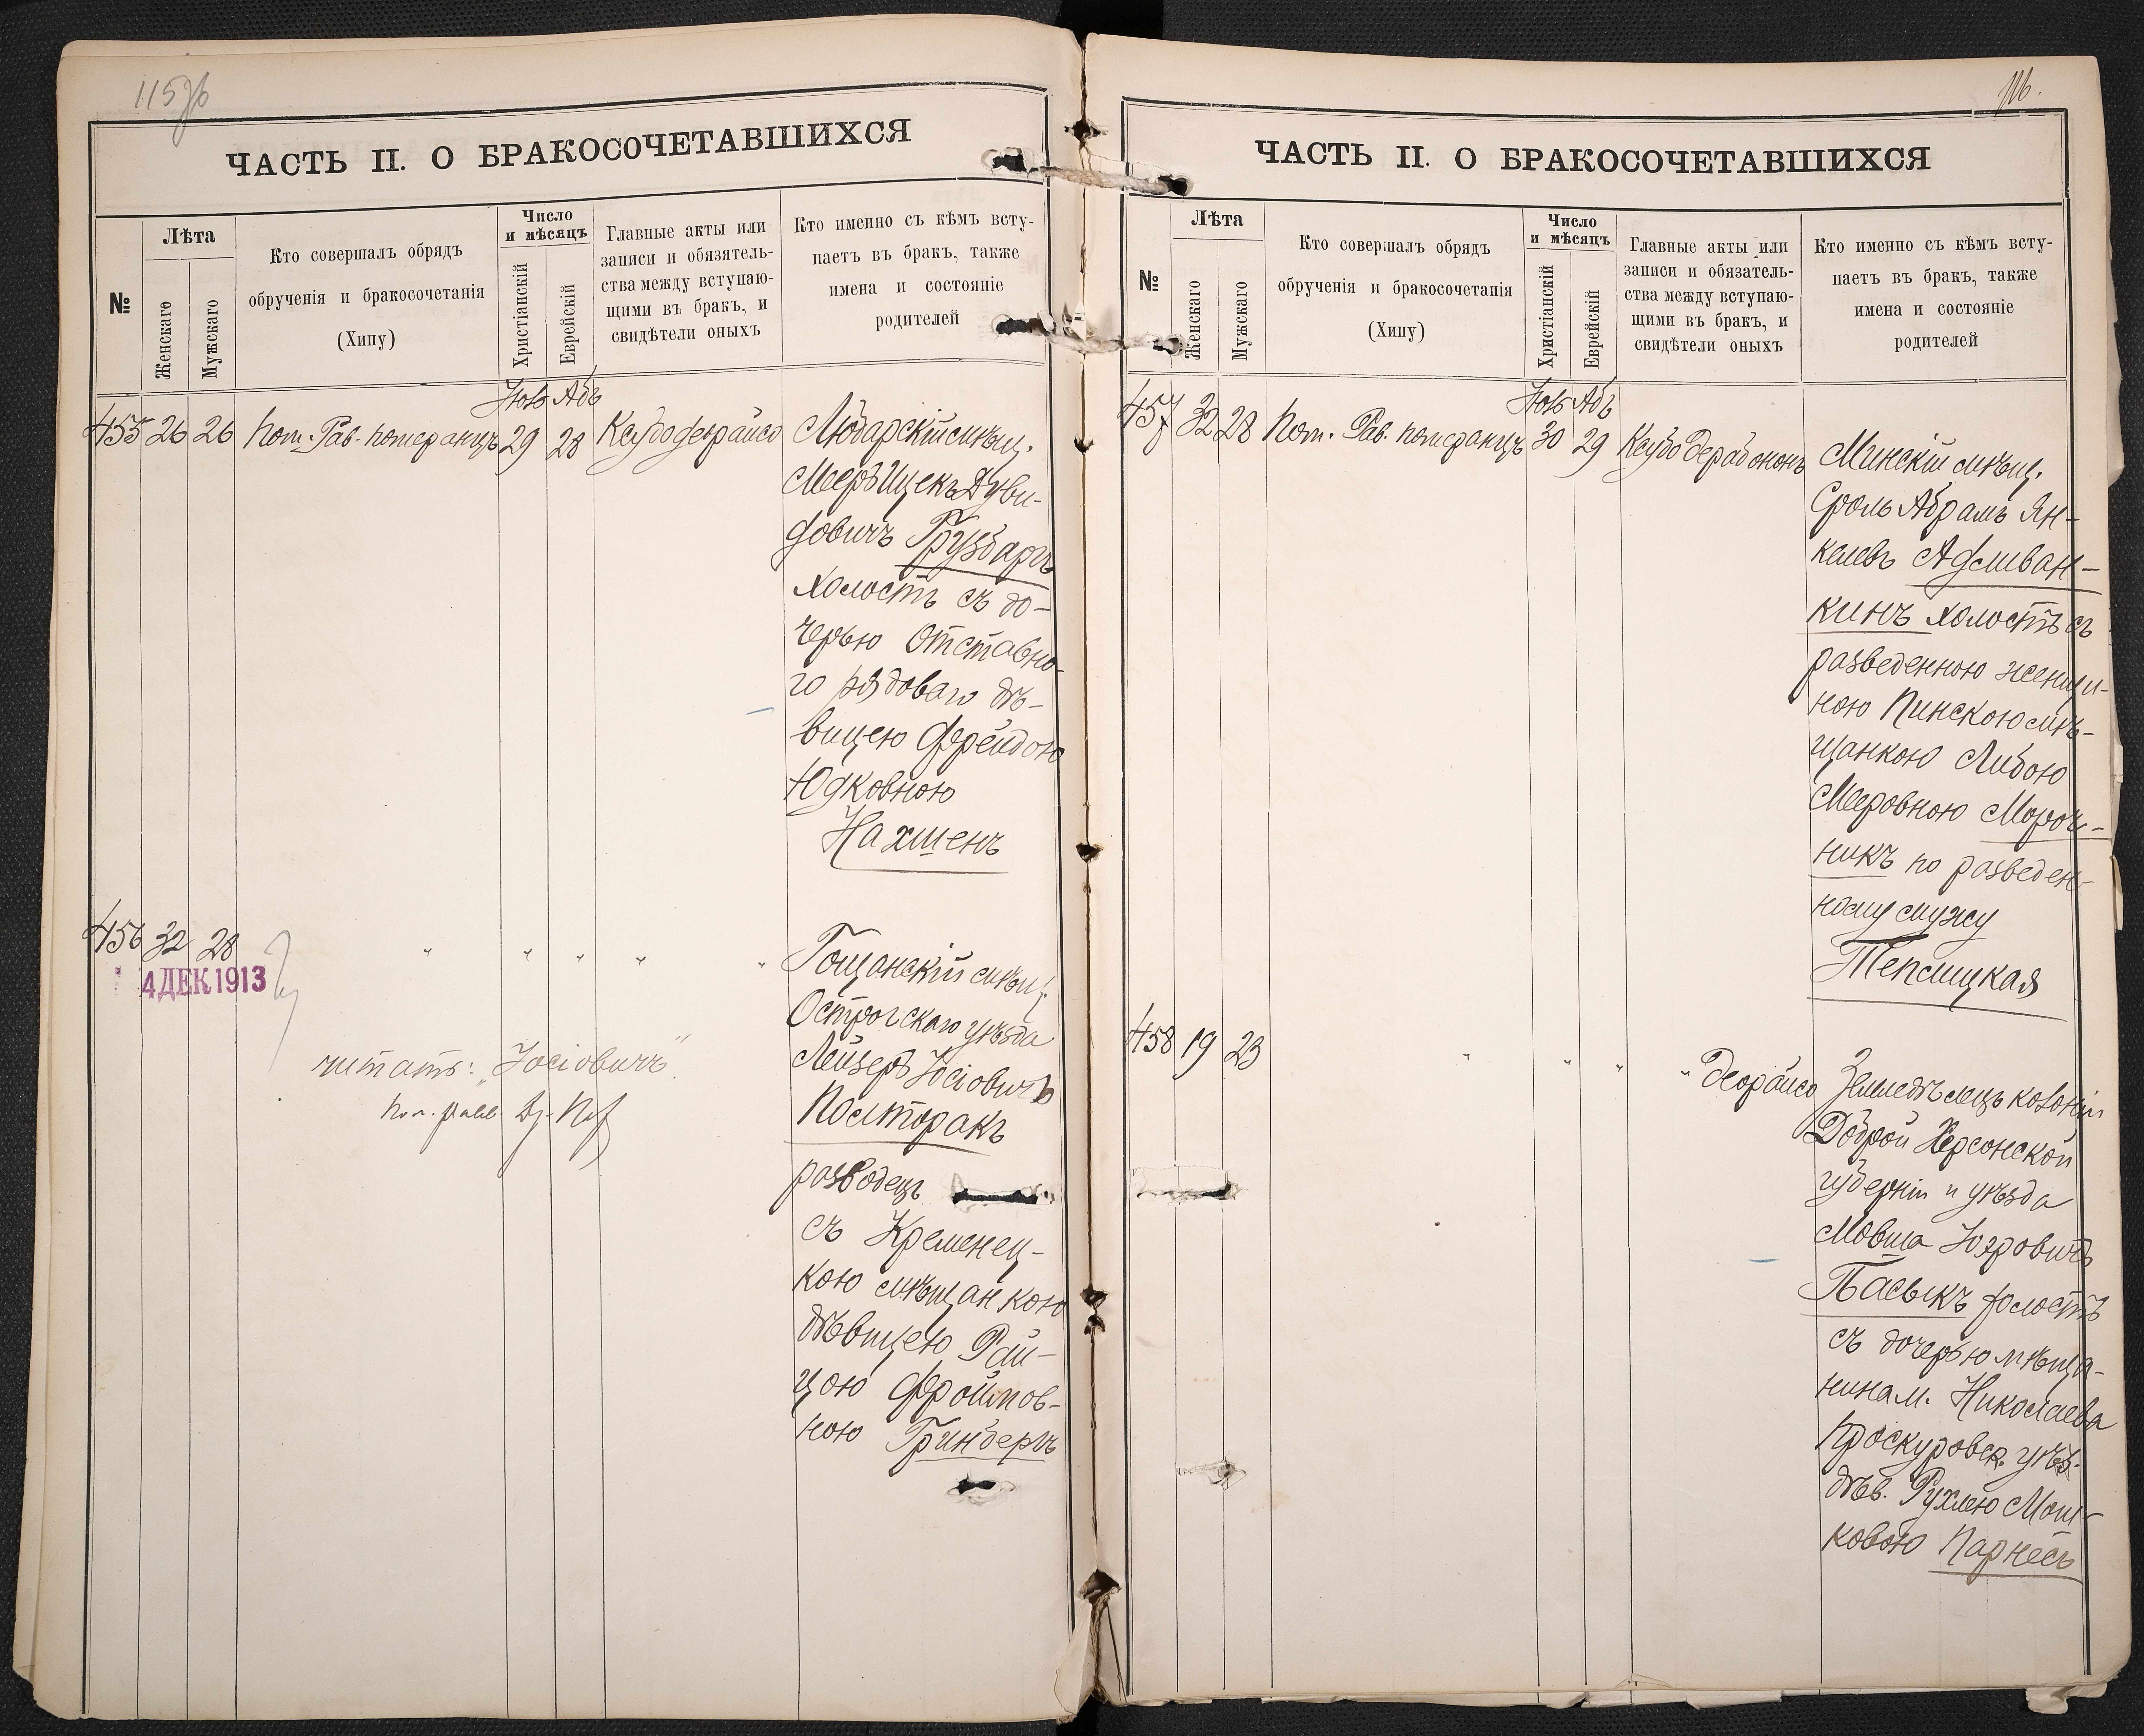 115об
ЧАСТЬ II. О БРАКОСОЧЕТАВШИХСЯ
№
Лѣта
Женскаго
Мужскаго
Кто совершалъ обрядъ
обрученія и бракосочетанія
(Хипу)
Число
и мѣсяцъ
Христіанскій
Еврейскій
Главные акты или
записи и обязятель-
ства между вступаю-
щими въ бракъ, и
свидѣтели оныхъ
Кто именно съ кѣмъ всту-
паетъ въ бракъ, также
имена и состояніе
родителей
Іюль Абъ
455 26 26 Пом. Рав. Померанцъ 29 28 Ксубо деорайсо
Любарскій мѣщ.
Мееръ Ицекъ Дуви-
довичъ Грузбаргъ
холостъ съ до-
черью отставно-
го рядоваго дѣ-
вицею Фрейдою
Юдковною
Нахшенъ
456 32 28 " " " " "
4 ДЕК 1913
Гощанскій мѣщ.
Острогскаго уѣзда
Лейзеръ Іосіовичъ
Полторакъ
разводецъ
съ Кременец-
кою мѣщанкою
дѣвицею Рай-
цою Фроймов-
ною Гринбергъ
читать: "Іосіовичъ".
Пом. равв.
116.
ЧАСТЬ II. О БРАКОСОЧЕТАВШИХСЯ
№
Лѣта
Женскаго
Мужскаго
Кто совершалъ обрядъ
обрученія и бракосочетанія
(Хипу)
Число
и мѣсяцъ
Христіанскій
Еврейскій
Главные акты или
записи и обязатель-
ства между вступаю-
щими въ бракъ, и
свидѣтели оныхъ
Кто именно съ кѣмъ всту-
паетъ въ бракъ, также
имена и состояніе
родителей
Іюль Абъ
457 32 28 Пом. Рав. Померанцъ 30 29 Ксубо дерабононъ
Минскій мѣщ.
Сроль Абрамъ Ян-
келевъ Адливан-
кинъ холостъ съ
разведенною женщи-
ною Пинскою мѣ-
щанкою Либою
Мееровною Мороч-
никъ по разведен-
ному мужу
Теплицкая
458 19 23 " " " " деорайсо
Земледѣлецъ колоніи
Доброй Херсонской
губерніи и уѣзда
Мовша
Басыкъ холостъ
съ дочерью мѣща-
нина м. Николаева
Проскуровск. уѣз.
дѣв. Рухлею Мош-
ковою Парнесъ